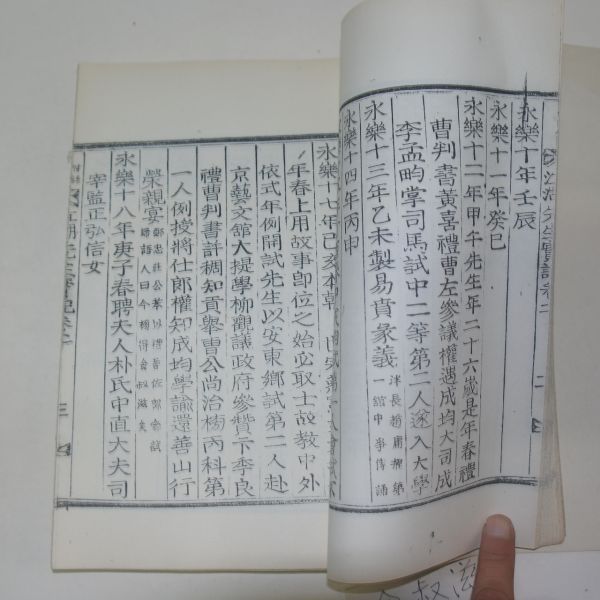 永樂十年壬辰
永樂十一年癸巳
永樂十二年甲午先生年二十六歲是年春禮
曹判書黃喜禮曹左參議權遇成均大司成
李孟畇掌司馬試中二等第二人遂入大學
永樂十三年乙未製易賁彖義
永樂十四年丙申
永樂十七年己亥本朝
年春上用故事卽位之始必取士故敎中外
依式年例開試先生以安東鄕試第二人赴
京藝文館大提學柳觀議政府參贊卞季良
禮曹判書許稠知貢擧曹公尙治榜丙科第
一人例授將仕郞權知成均學諭還善山行
榮親宴
永樂十八年庚子春聘夫人朴氏中直大夫司
宰監正弘信女
三
二
叔滋